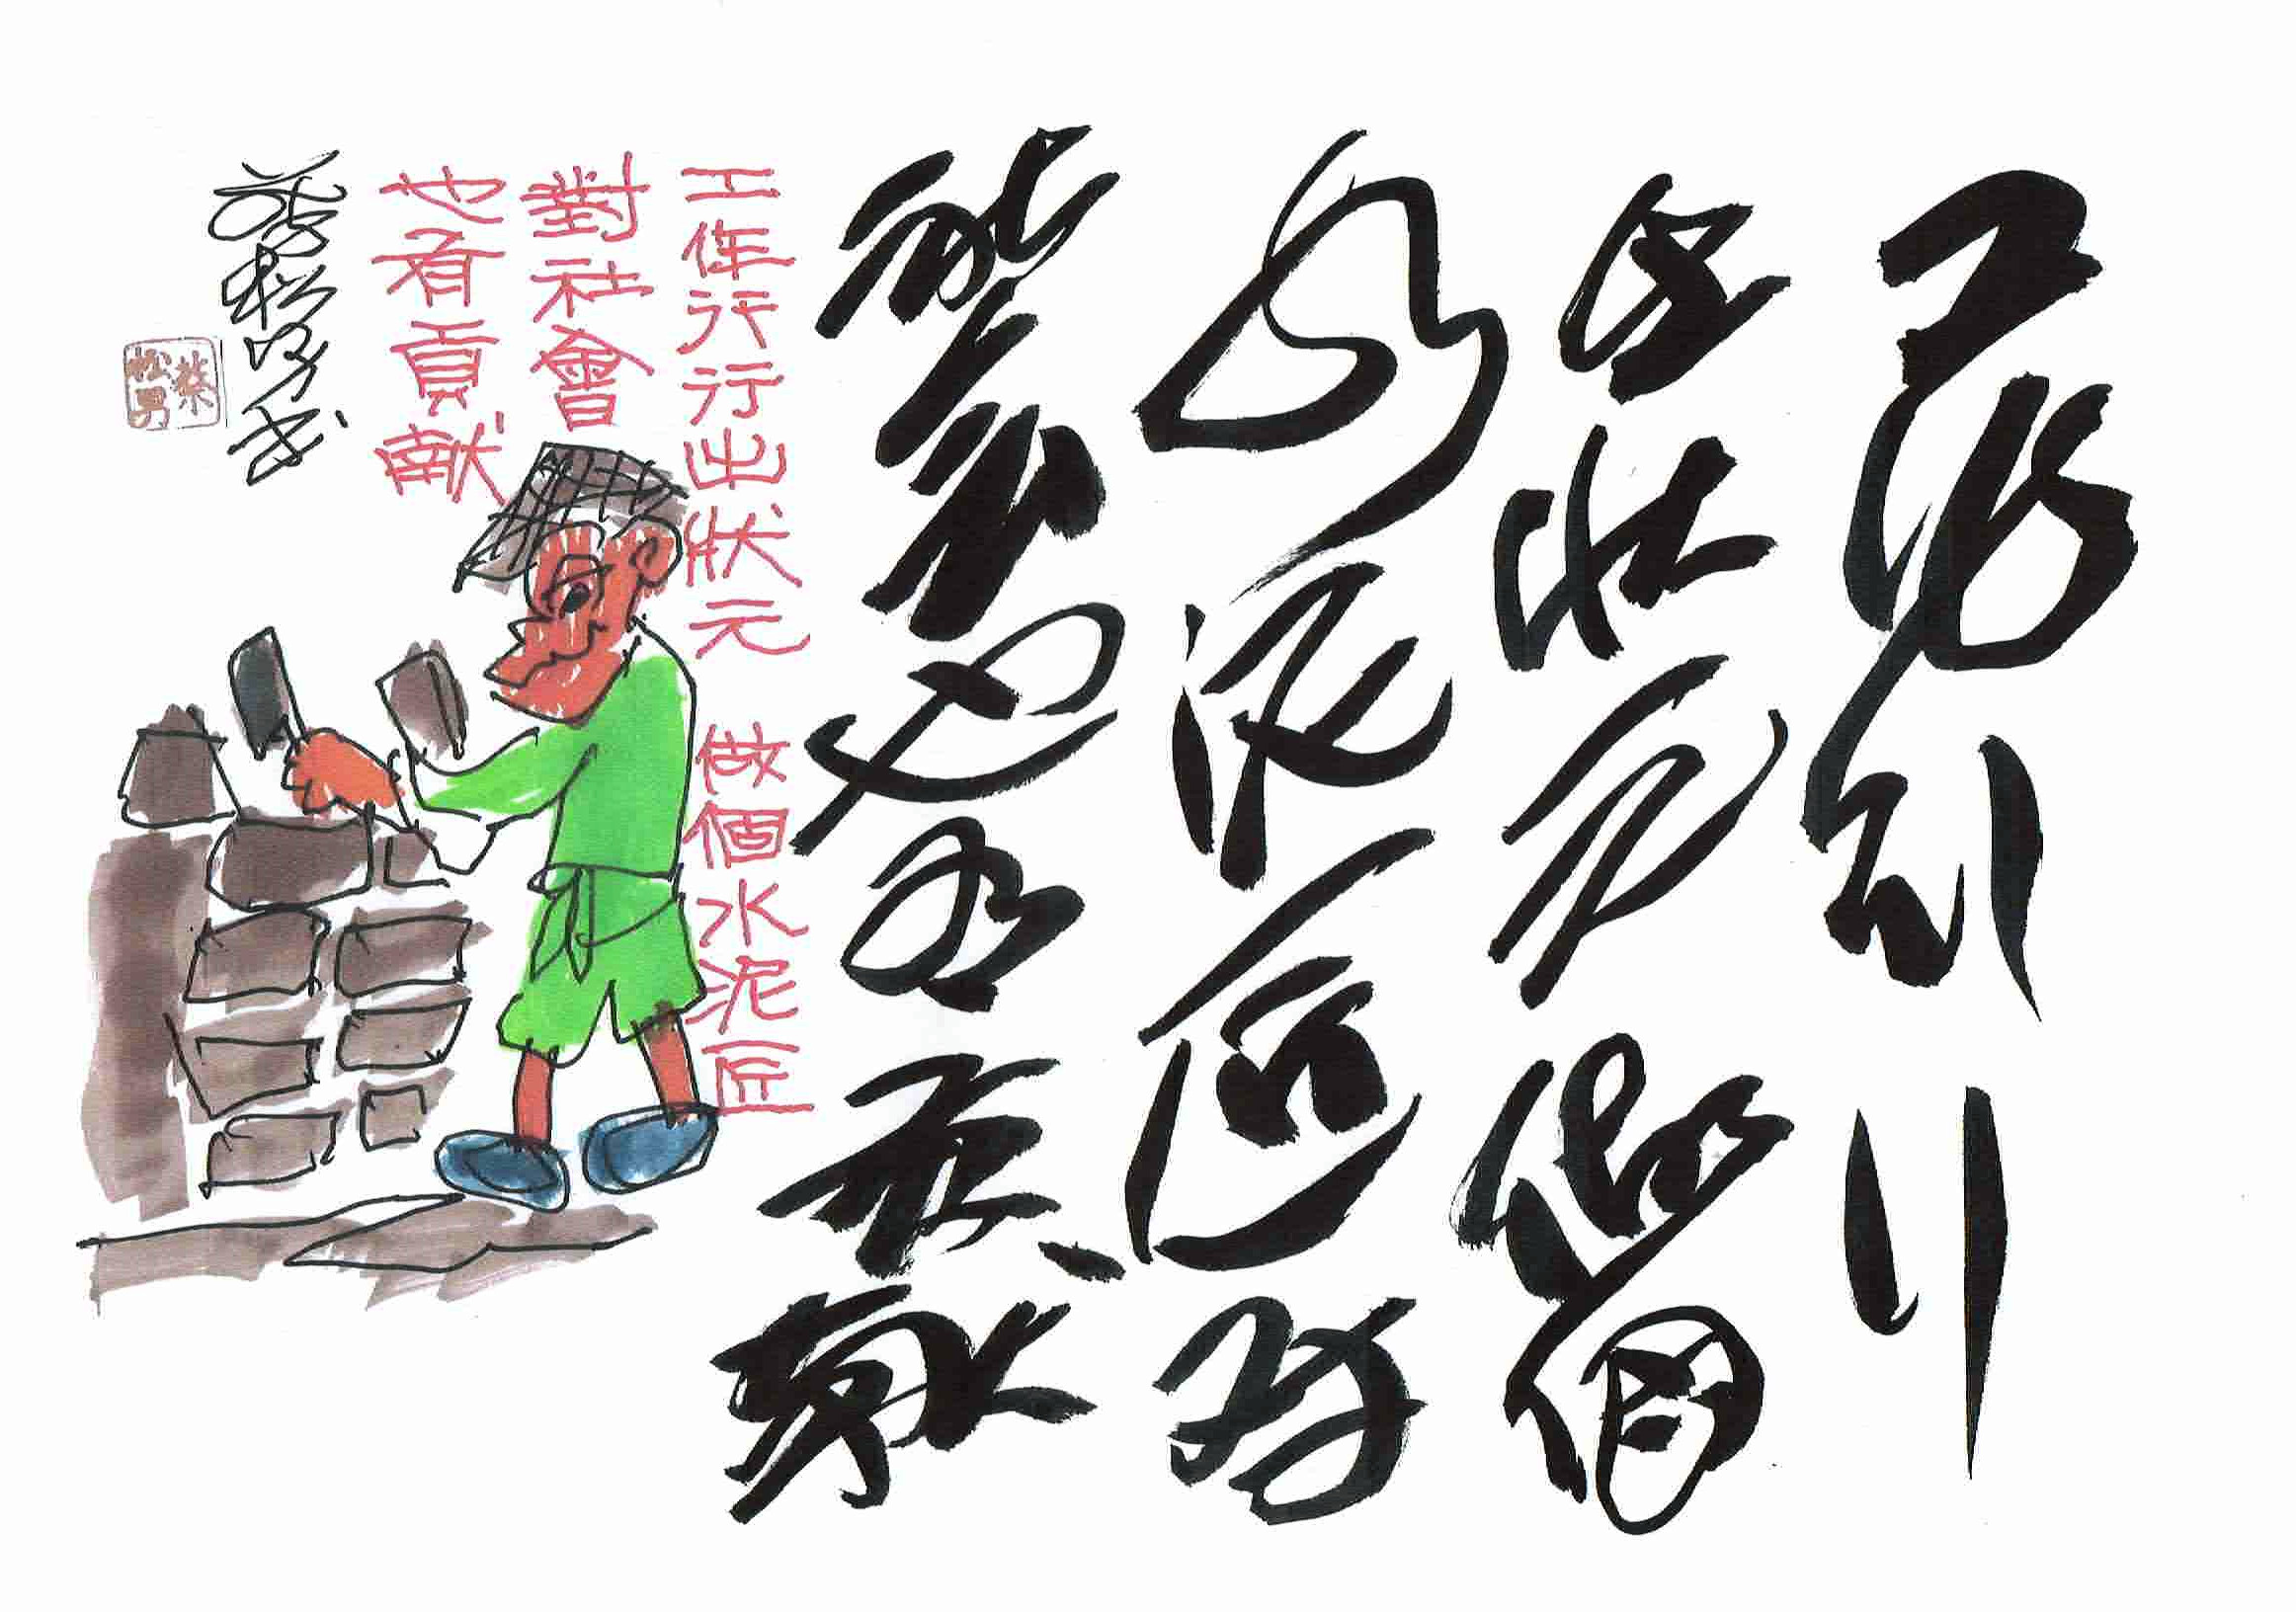 工作行行
出狀元做個
水泥匠對
社會也有貢獻
工作行行出狀元 做個水泥匠
對社會
也有貢獻
蔡松男書
蔡
松男